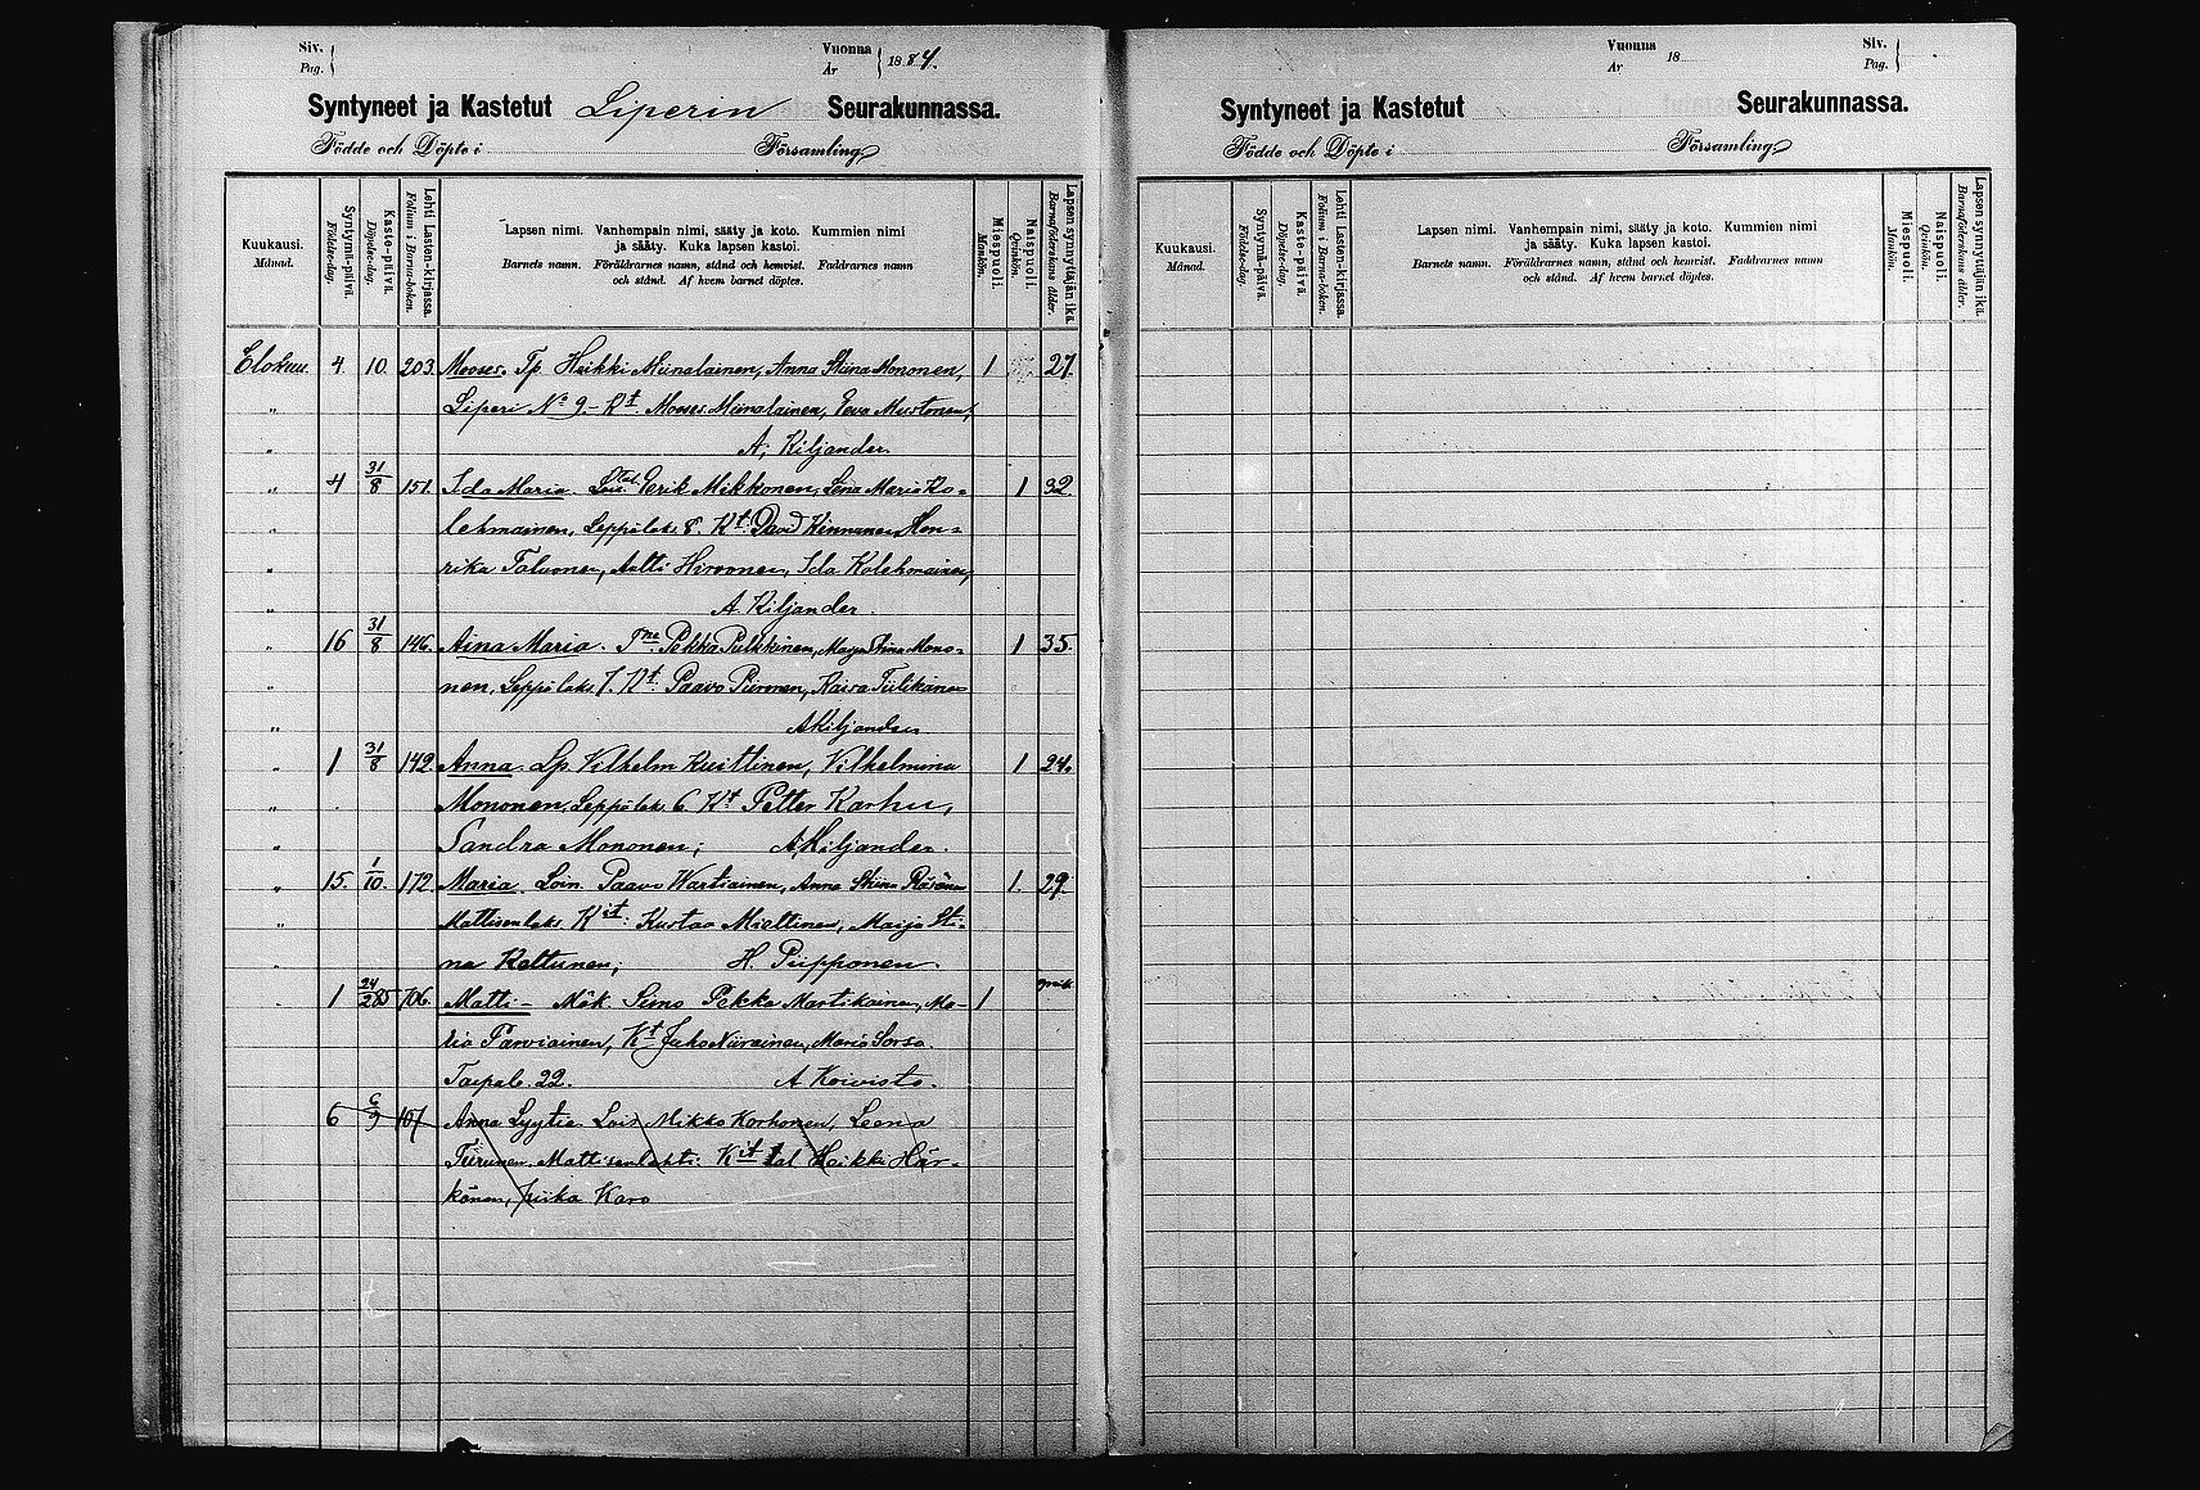 Siv.
Pag.
Vuonna
År
1884.
Syntyneet ja Kastetut Liperin Seurakunnassa.
Födde och Döpte i Församling
Kuukausi.
Månad.
Syntymä-päivä.
Födelse-dag.
Kaste-päivä.
Döpelse-dag.
Lehti Lasten-kirjassa.
Folium i Barna-boken.
Lapsen nimi. Vanhempain nimi, sääty ja koto. Kummien nimi
ja sääty. Kuka lapsen kastoi.
Barnets namn. Föräldrarnes namn, stånd och hemvist. Faddrarnes namn
och stånd. Af hvem barnet döptes.
Miespuoli.
Mankön.
Naispuoli.
Qvinkön.
Lapsen synnyttäjän ikä.
Barnaföderskans ålder.
Elokuu 4. 10. 203. Mooses. Tp. Heikki Miinalainen, Anna Stiina Mononen, 1 27.
„ Liperi No 9.- Kt. Mooses Miinalainen, Eeva Mustonen,
„ A. Kiljander.
„ 4 31/8 151. Ida Maria. Tal. Eerik Mikkonen, Lena Maria Ko= 1 32.
„ lehmainen, Leppälaks. 8. Kt. David Kinnunen, Hen=
„ rika Toluonen, Antti Hirvonen, Ida Kolehmainen,
„ A. Kiljander.
„ 16 31/8 146. Aina Maria. Pekka Pulkkinen, Maija Stina Mono= 1 35.
„ nen, Leppälaks. 7. Kt. Paavo Piironen, Kaisa Tiilikainen
„ AKiljander
„ 1 31/8 142. Anna. Lp. Vilhelm Kuittinen, Vilhelmina 1 24.
„ Mononen, Leppälak. 6. Kt. Petter Karhu,
„ Sandra Mononen; AKiljander.
„ 15. 1/10. 172. Maria. Loin. Paavo Wartiainen, Anna Stiina Räsänen 1. 29.
„ Mattisenlaks. Kit: Kustaa Miettinen, Maija Sti=
„ na Kettunen; H. Piipponen.
„ 1 24/2 85 706. Matti - Mäk. Simo Pekka Martikainen, Ma- 1
lia Parviainen, Kt. Juho Niiranen, Maria Sorsa.
Taipale. 22. A Koivisto.
6 6/9 107 Anna Lyytia. Lois Mikko Korhonen, Leena
Tiirunen, Mattisenlahti: Kit tal Heikki Här-
könen, piika Karo
Vuonna
År
18
Siv.
Pag.
Syntyneet ja Kastetut Seurakunnassa.
Födde och Döpte i Församling
Kuukausi.
Månad.
Syntymä-päivä.
Födelse-dag.
Kaste-päivä.
Döpelse-dag.
Lehti Lasten-kirjassa.
Folium i Barna-boken.
Lapsen nimi. Vanhempain nimi, sääty ja koto. Kummien nimi
ja sääty. Kuka lapsen kastoi.
Barnets namn. Föräldrarnes namn, stånd och hemvist. Faddrarnes namn
och stånd. Af hvem barnet döptes.
Miespuoli.
Mankön.
Naispuoli.
Qvinkön.
Lapsen synnyttäjän ikä.
Barnaföderskans ålder.